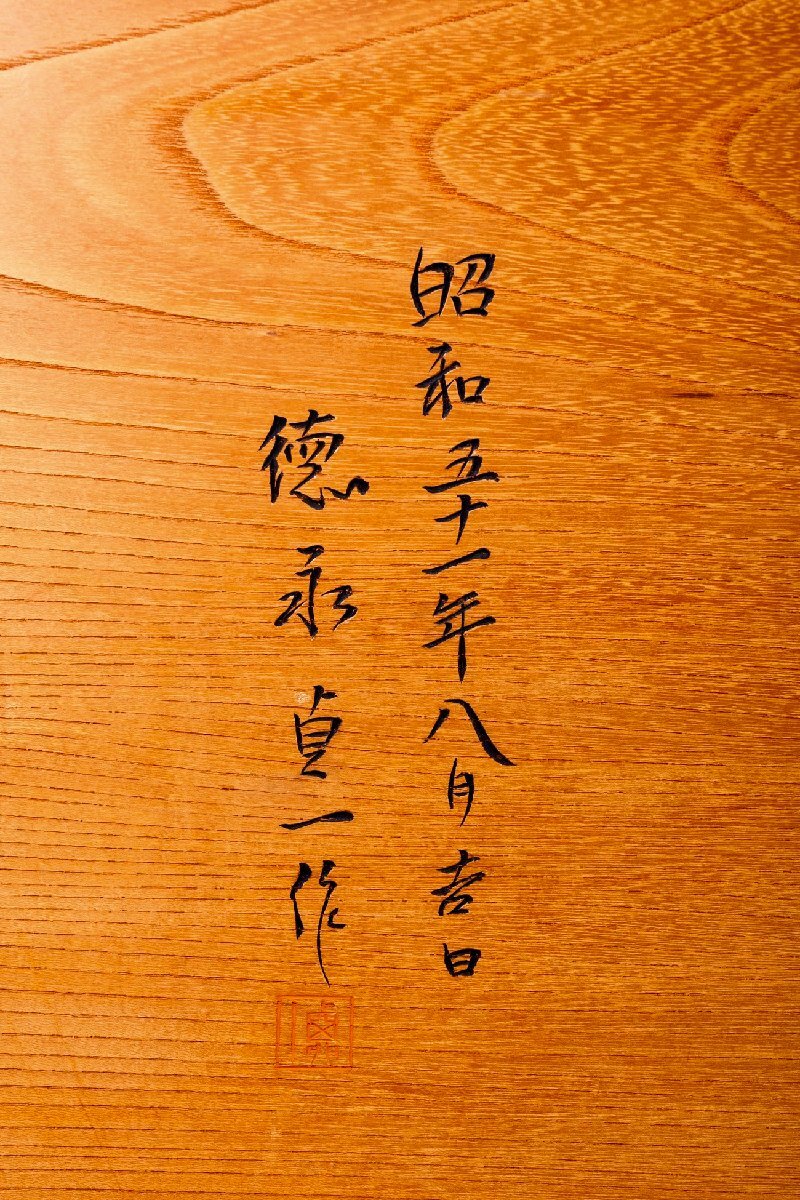 昭和五十一年八月吉日
徳永貞一作